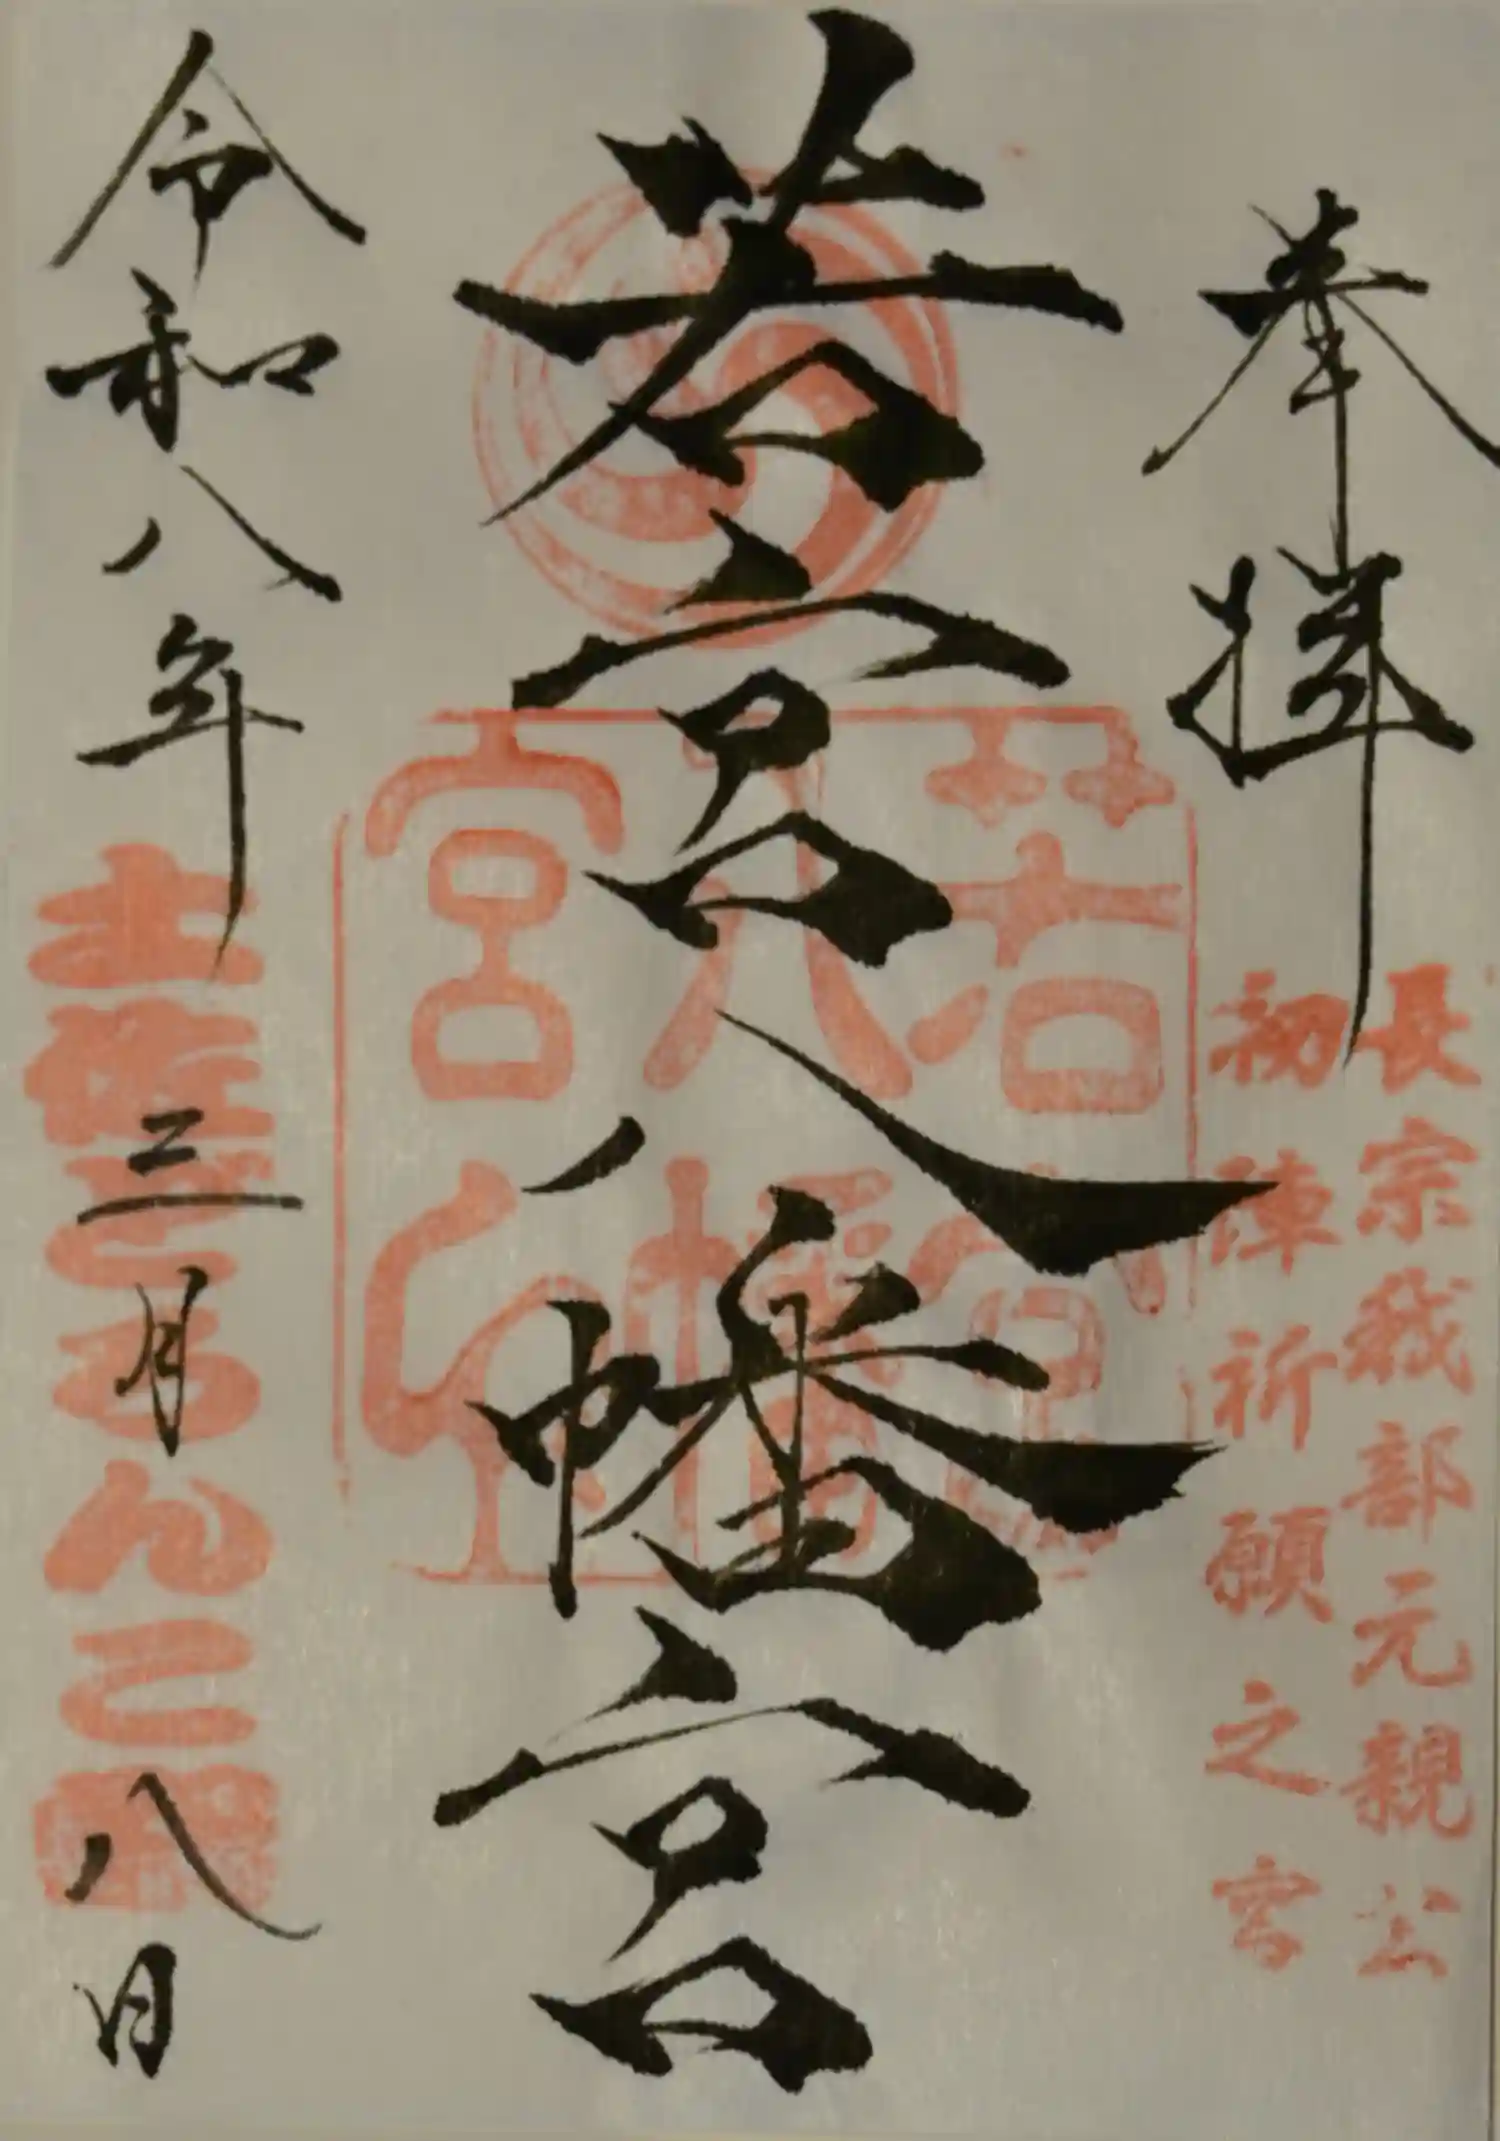 奉拝
長宗我部元親公
初陣祈願之宮
若宮八幡宮
若宮
八幡
宮印
令和八年三月八日
土佐どろんこ